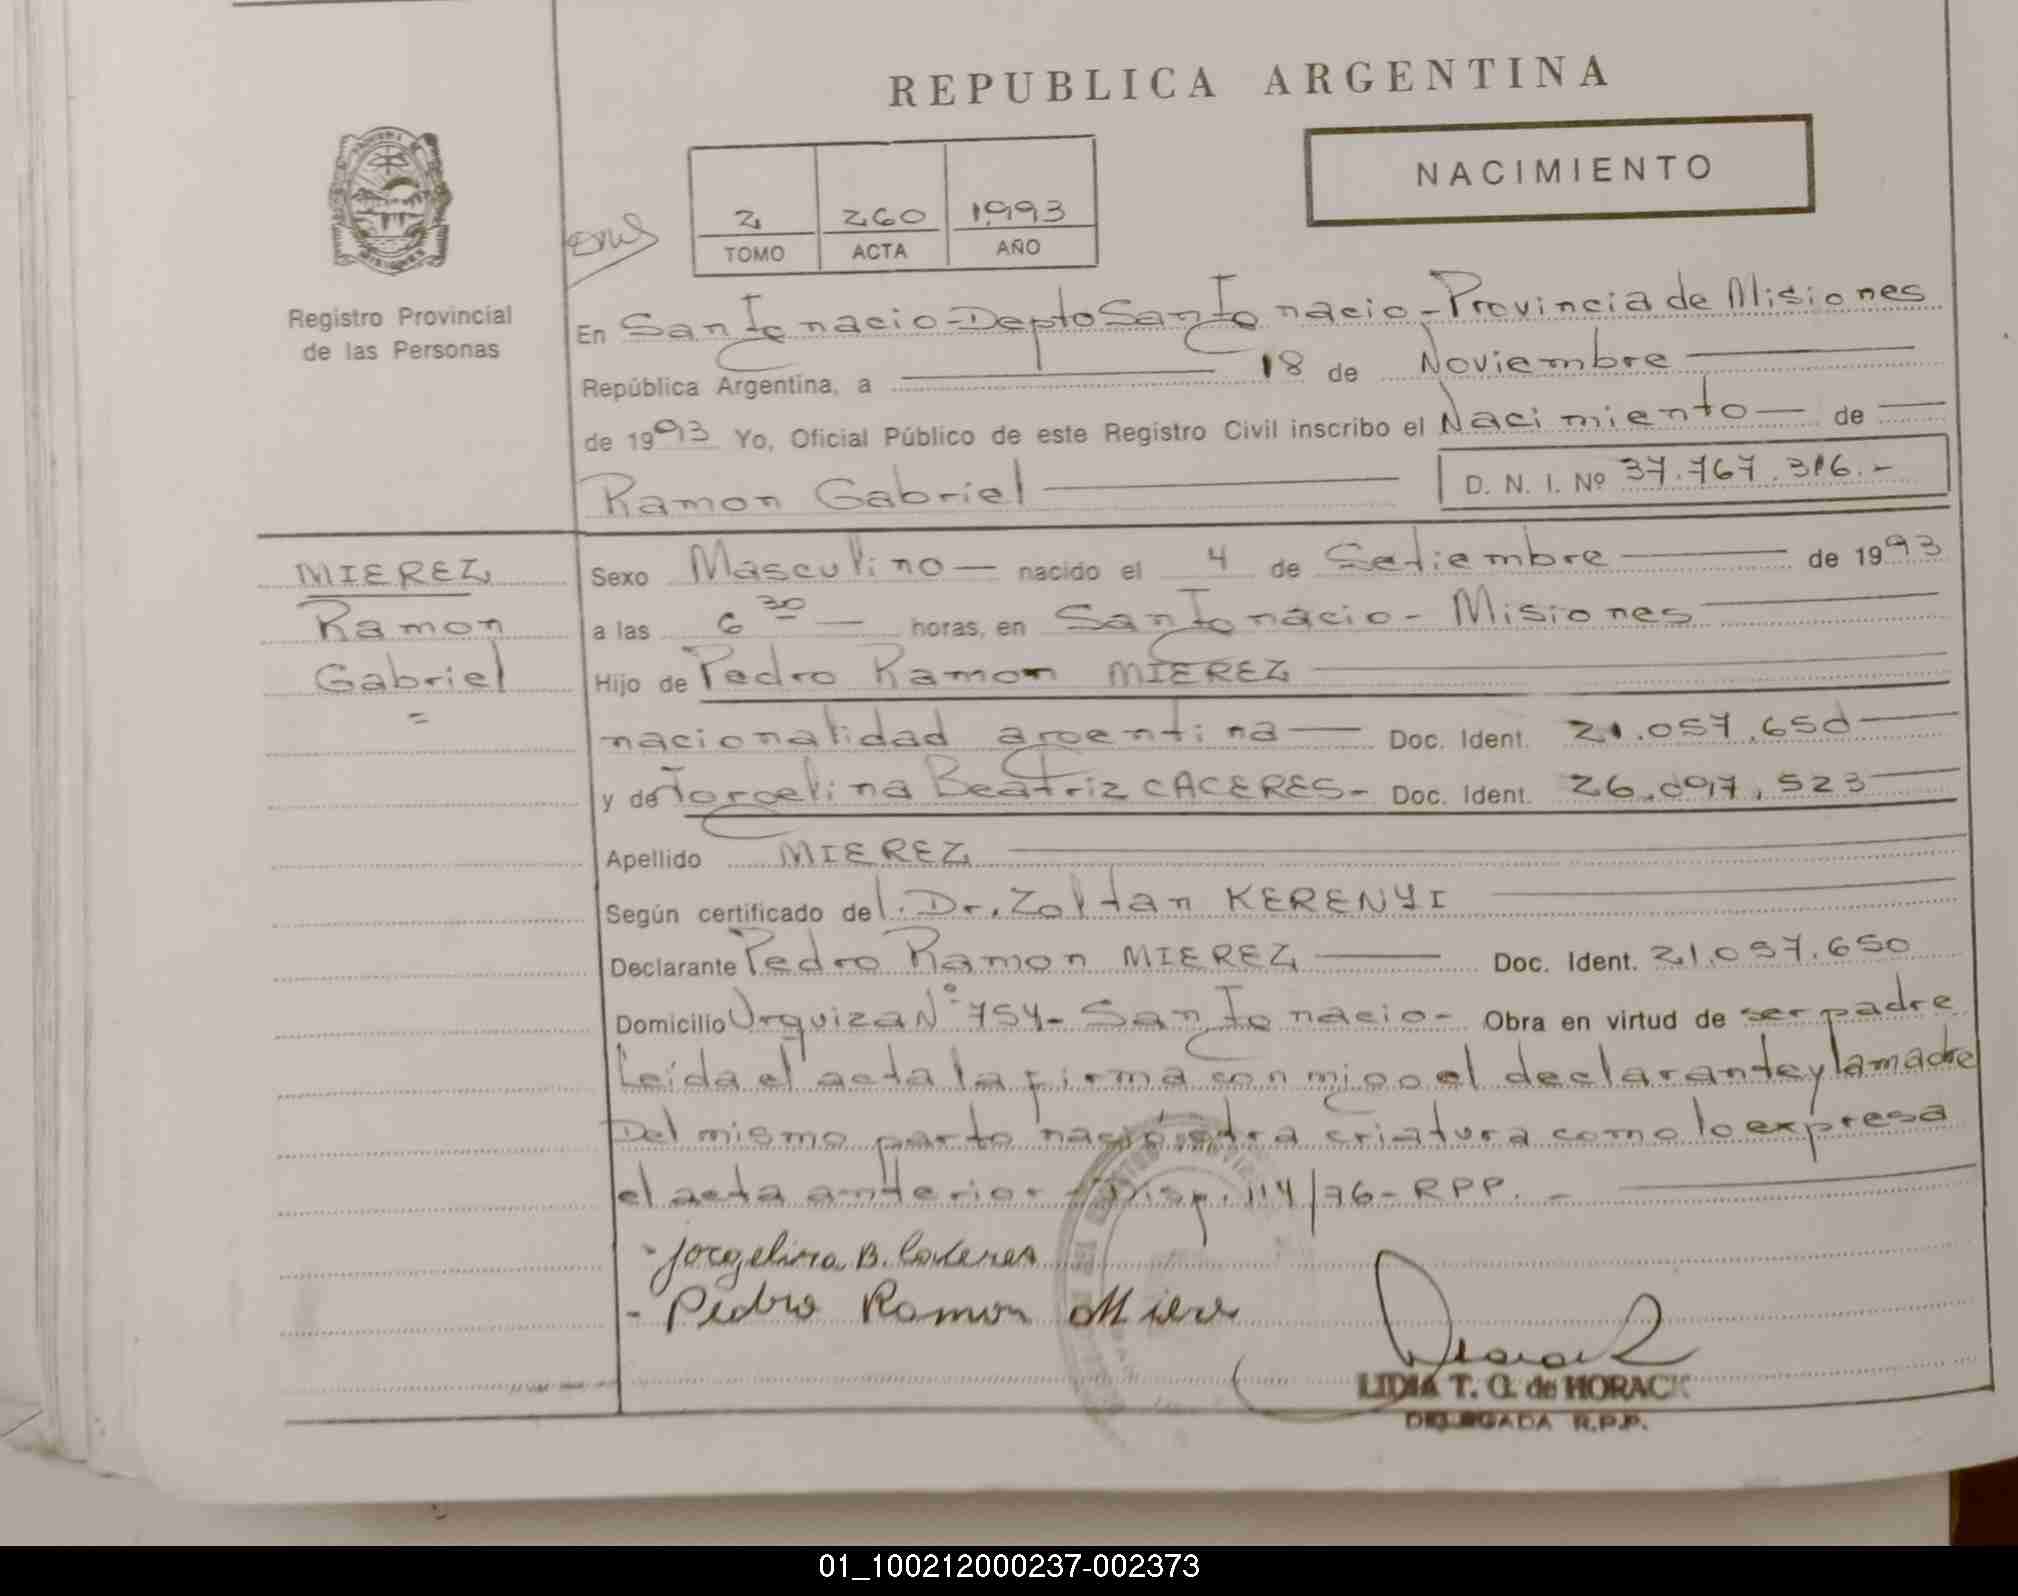 REPUBLICA ARGENTINA
NACIMIENTO
2 260 1993
TOMO ACTA AÑO
Registro Provincial
de las Personas
En San Ignacio - Depto San Ignacio - Provincia de Misiones
República Argentina, a 18 de Noviembre
de 1993 Yo, Oficial Público de este Registro Civil inscribo el Nacimiento de
Ramon Gabriel D. N. I. Nº 37.767.316.-
MIEREZ
Ramon
Gabriel
=
Sexo Masculino nacido el 4 de Setiembre de 1993
a las 6 30 horas, en San Ignacio - Misiones
Hijo de Pedro Ramon MIEREZ
nacionalidad argentina Doc. Ident. 21.057.650
y de Jorgelina Beatriz CACERES - Doc. Ident. 26.097.523
Apellido MIEREZ
Según certificado del. Dr. Zoltan KERENYI
Declarante Pedro Ramon MIEREZ Doc. Ident. 21.057.650
Domicilio Urquiza N° 754 - San Ignacio - Obra en virtud de ser padre
Leída el acta la firma con migo el declarante y la madre
Del mismo parto nació otra criatura como lo expresa
el acta anterior - Disp. 114/76 - RPP. -
- Jorgelina B. Caceres
- Pedro Ramon Mierez
LIDIA T. G. de HORACK
DELEGADA R.P.P.
01_100212000237-002373